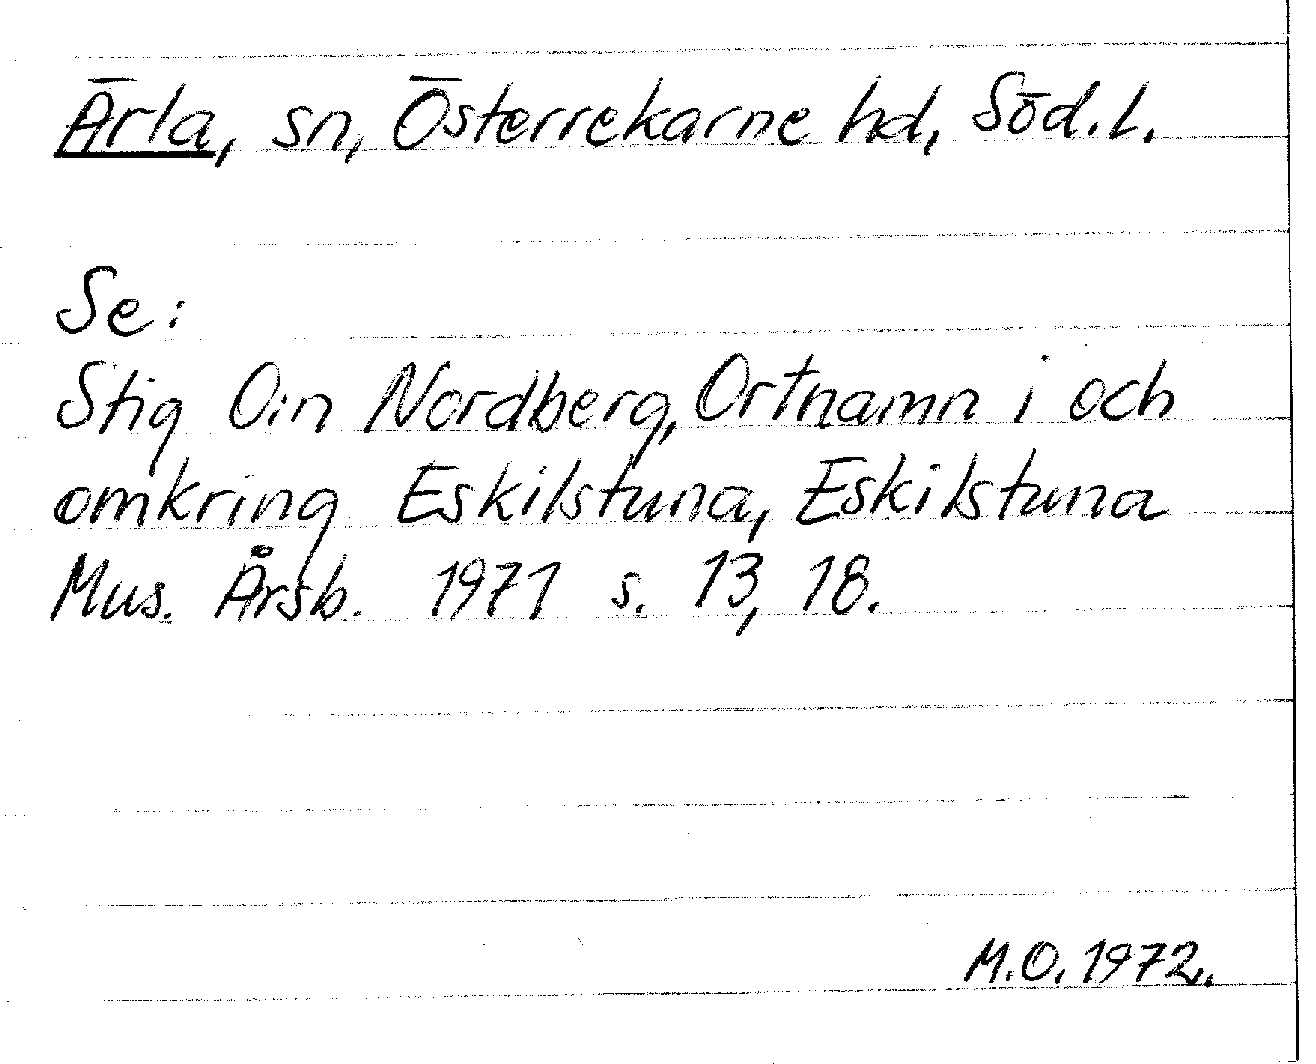 Ärla, sn, Österrekarne hd, Söd.l.
Se:
Stig O:n Nordberg, Ortnamn i och
omkring Eskilstuna, Eskilstuna
Mus. Årsb. 1971 s. 13, 18.
M.O. 1972.